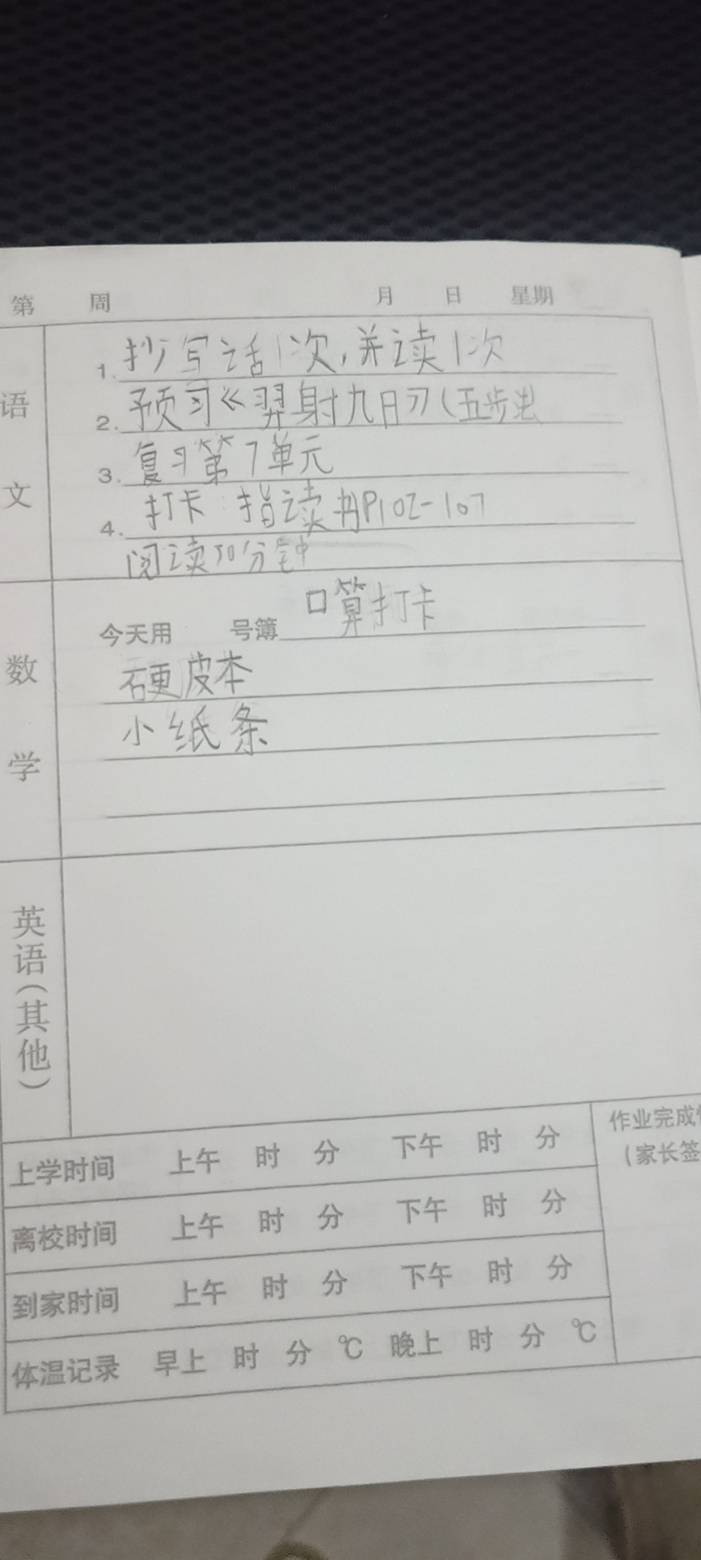 第 周 月 日 星期
语文
1. 抄写话1次,并读1次
2. 预习《羿射九日》(五步法
3. 复习第7单元
4. 打卡 指读书P102-107
阅读30分钟
数学
今天用 号簿 口算打卡
硬皮本
小纸条
英语(其他)
上学时间 上午 时 分 下午 时 分
离校时间 上午 时 分 下午 时 分
到家时间 上午 时 分 下午 时 分
体温记录 早上 时 分 ℃ 晚上 时 分 ℃
作业完成
(家长签